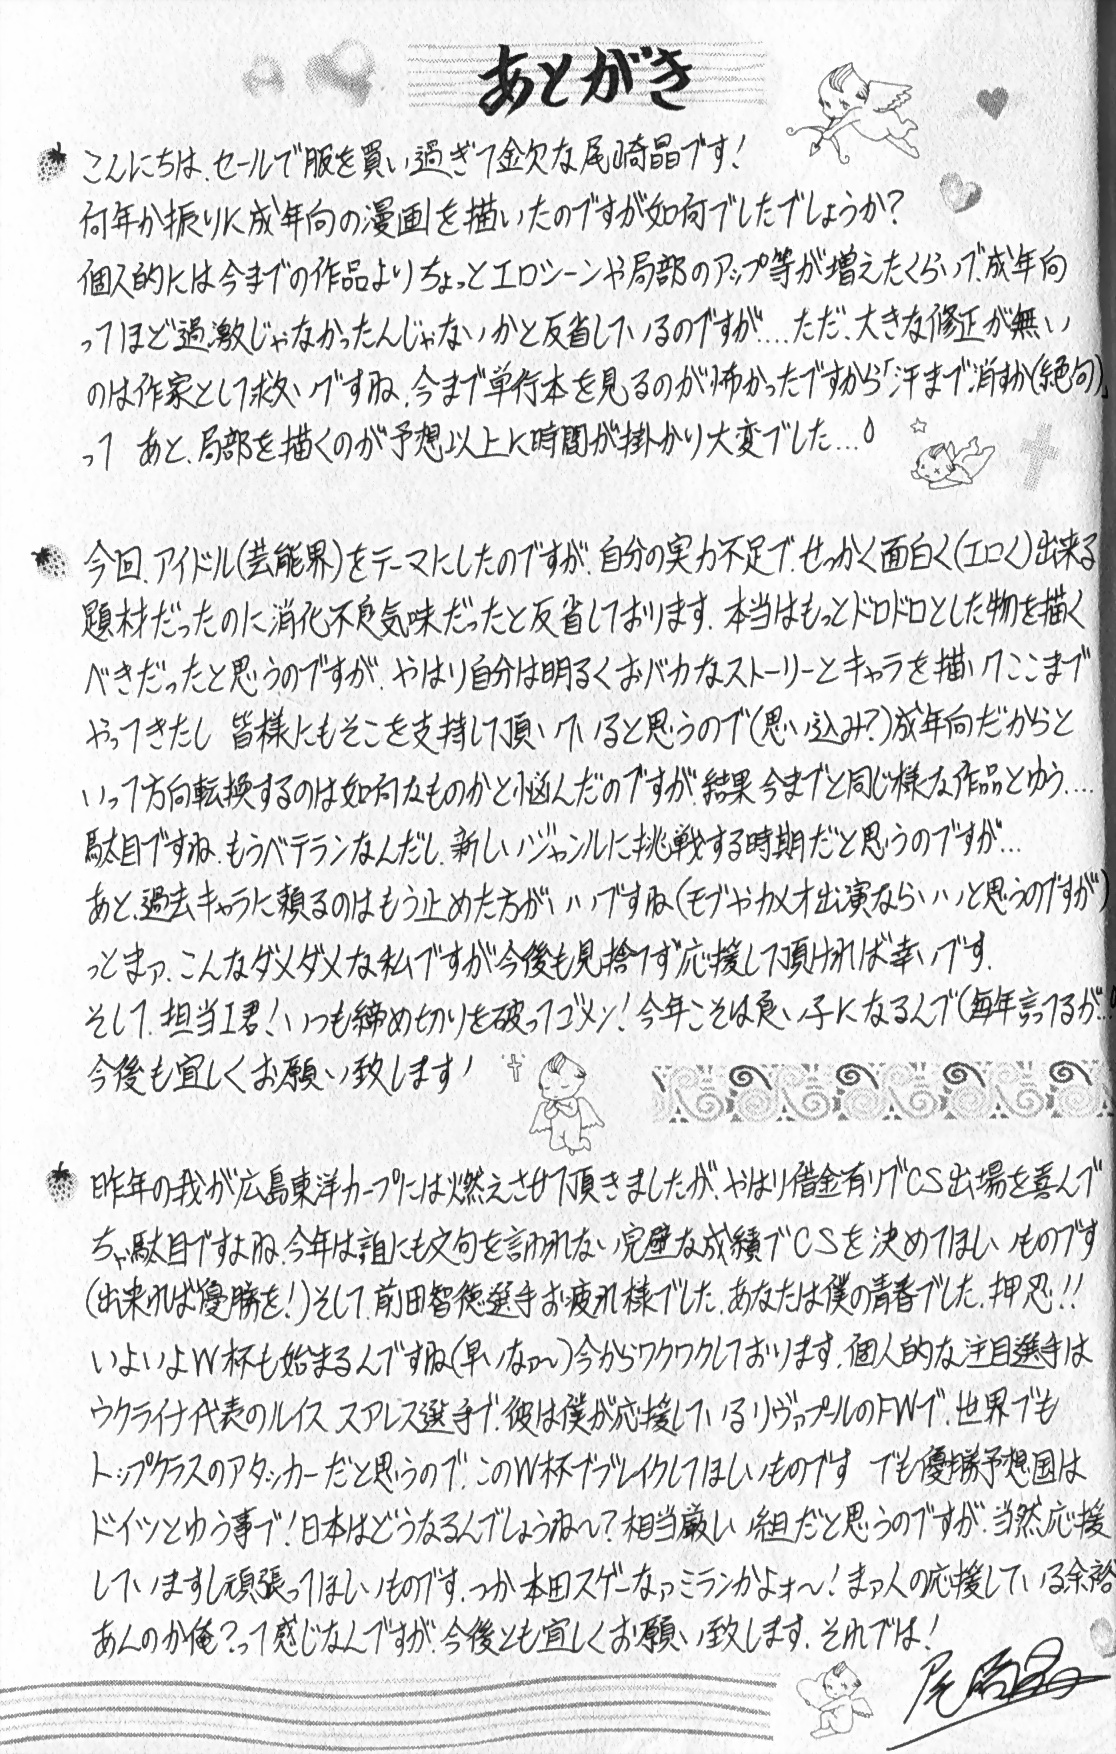 あとがき
こんにちは、セールで服を買い過ぎて金欠な尾崎晶です!
何年か振りに成年向の漫画を描いたのですが如何でしたでしょうか?
個人的には今までの作品よりちょっとエロシーンや局部のアップ等が増えたくらいで、成年向
ってほど過激じゃなかったんじゃないかと反省しているのですが....ただ、大きな修正が無い
のは作家として救いですね、今まで単行本を見るのが怖かったですから「汗まで消すか(絶句)」
って あと、局部を描くのが予想以上に時間が掛かり大変でした...
今回、アイドル(芸能界)をテーマにしたのですが、自分の実力不足で、せっかく面白く(エロく)出来る
題材だったのに消化不良気味だったと反省しております。本当はもっとドロドロとした物を描く
べきだったと思うのですが、やはり自分は明るくおバカなストーリーとキャラを描いてここまで
やってきたし 皆様にもそこを支持して頂いていると思うので(思い込み?)成年向だからと
いって方向転換するのは如何なものかと悩んだのですが、結果今までと同じ様な作品とゆう....
駄目ですね、もうベテランなんだし、新しいジャンルに挑戦する時期だと思うのですが...
あと、過去キャラに頼るのはもう止めた方がいいですね(モブやカメオ出演ならいいと思うのですが)
っとまァ、こんなダメダメな私ですが今後も見捨てず応援して頂ければ幸いです。
そして、担当I君!いつも締め切りを破ってゴメン!今年こそは良い子になるんで(毎年言ってるが..)
今後も宜しくお願い致します!
昨年の我が広島東洋カープには燃えさせて頂きましたが、やはり借金有りでCS出場を喜んで
ちゃ駄目ですよね、今年は誰にも文句を言われない完璧な成績でCSを決めてほしいものです
(出来れば優勝を!)そして、前田智徳選手お疲れ様でした、あなたは僕の青春でした、押忍!!
いよいよW杯も始まるんですね(早いなァ〜)今からワクワクしております。個人的な注目選手は
ウクライナ代表のルイス スアレス選手で、彼は僕が応援しているリヴァプールのFWで、世界でも
トップクラスのアタッカーだと思うので、このW杯でブレイクしてほしいものです でも優勝予想国は
ドイツとゆう事で!日本はどうなるんでしょうね〜?相当厳しい組だと思うのですが、当然応援
していますし頑張ってほしいものです、つか本田スゲーなァミランかよォ〜!まァ人の応援している余裕
あんのか俺?って感じなんですが、今後とも宜しくお願い致します、それでは!
尾崎晶